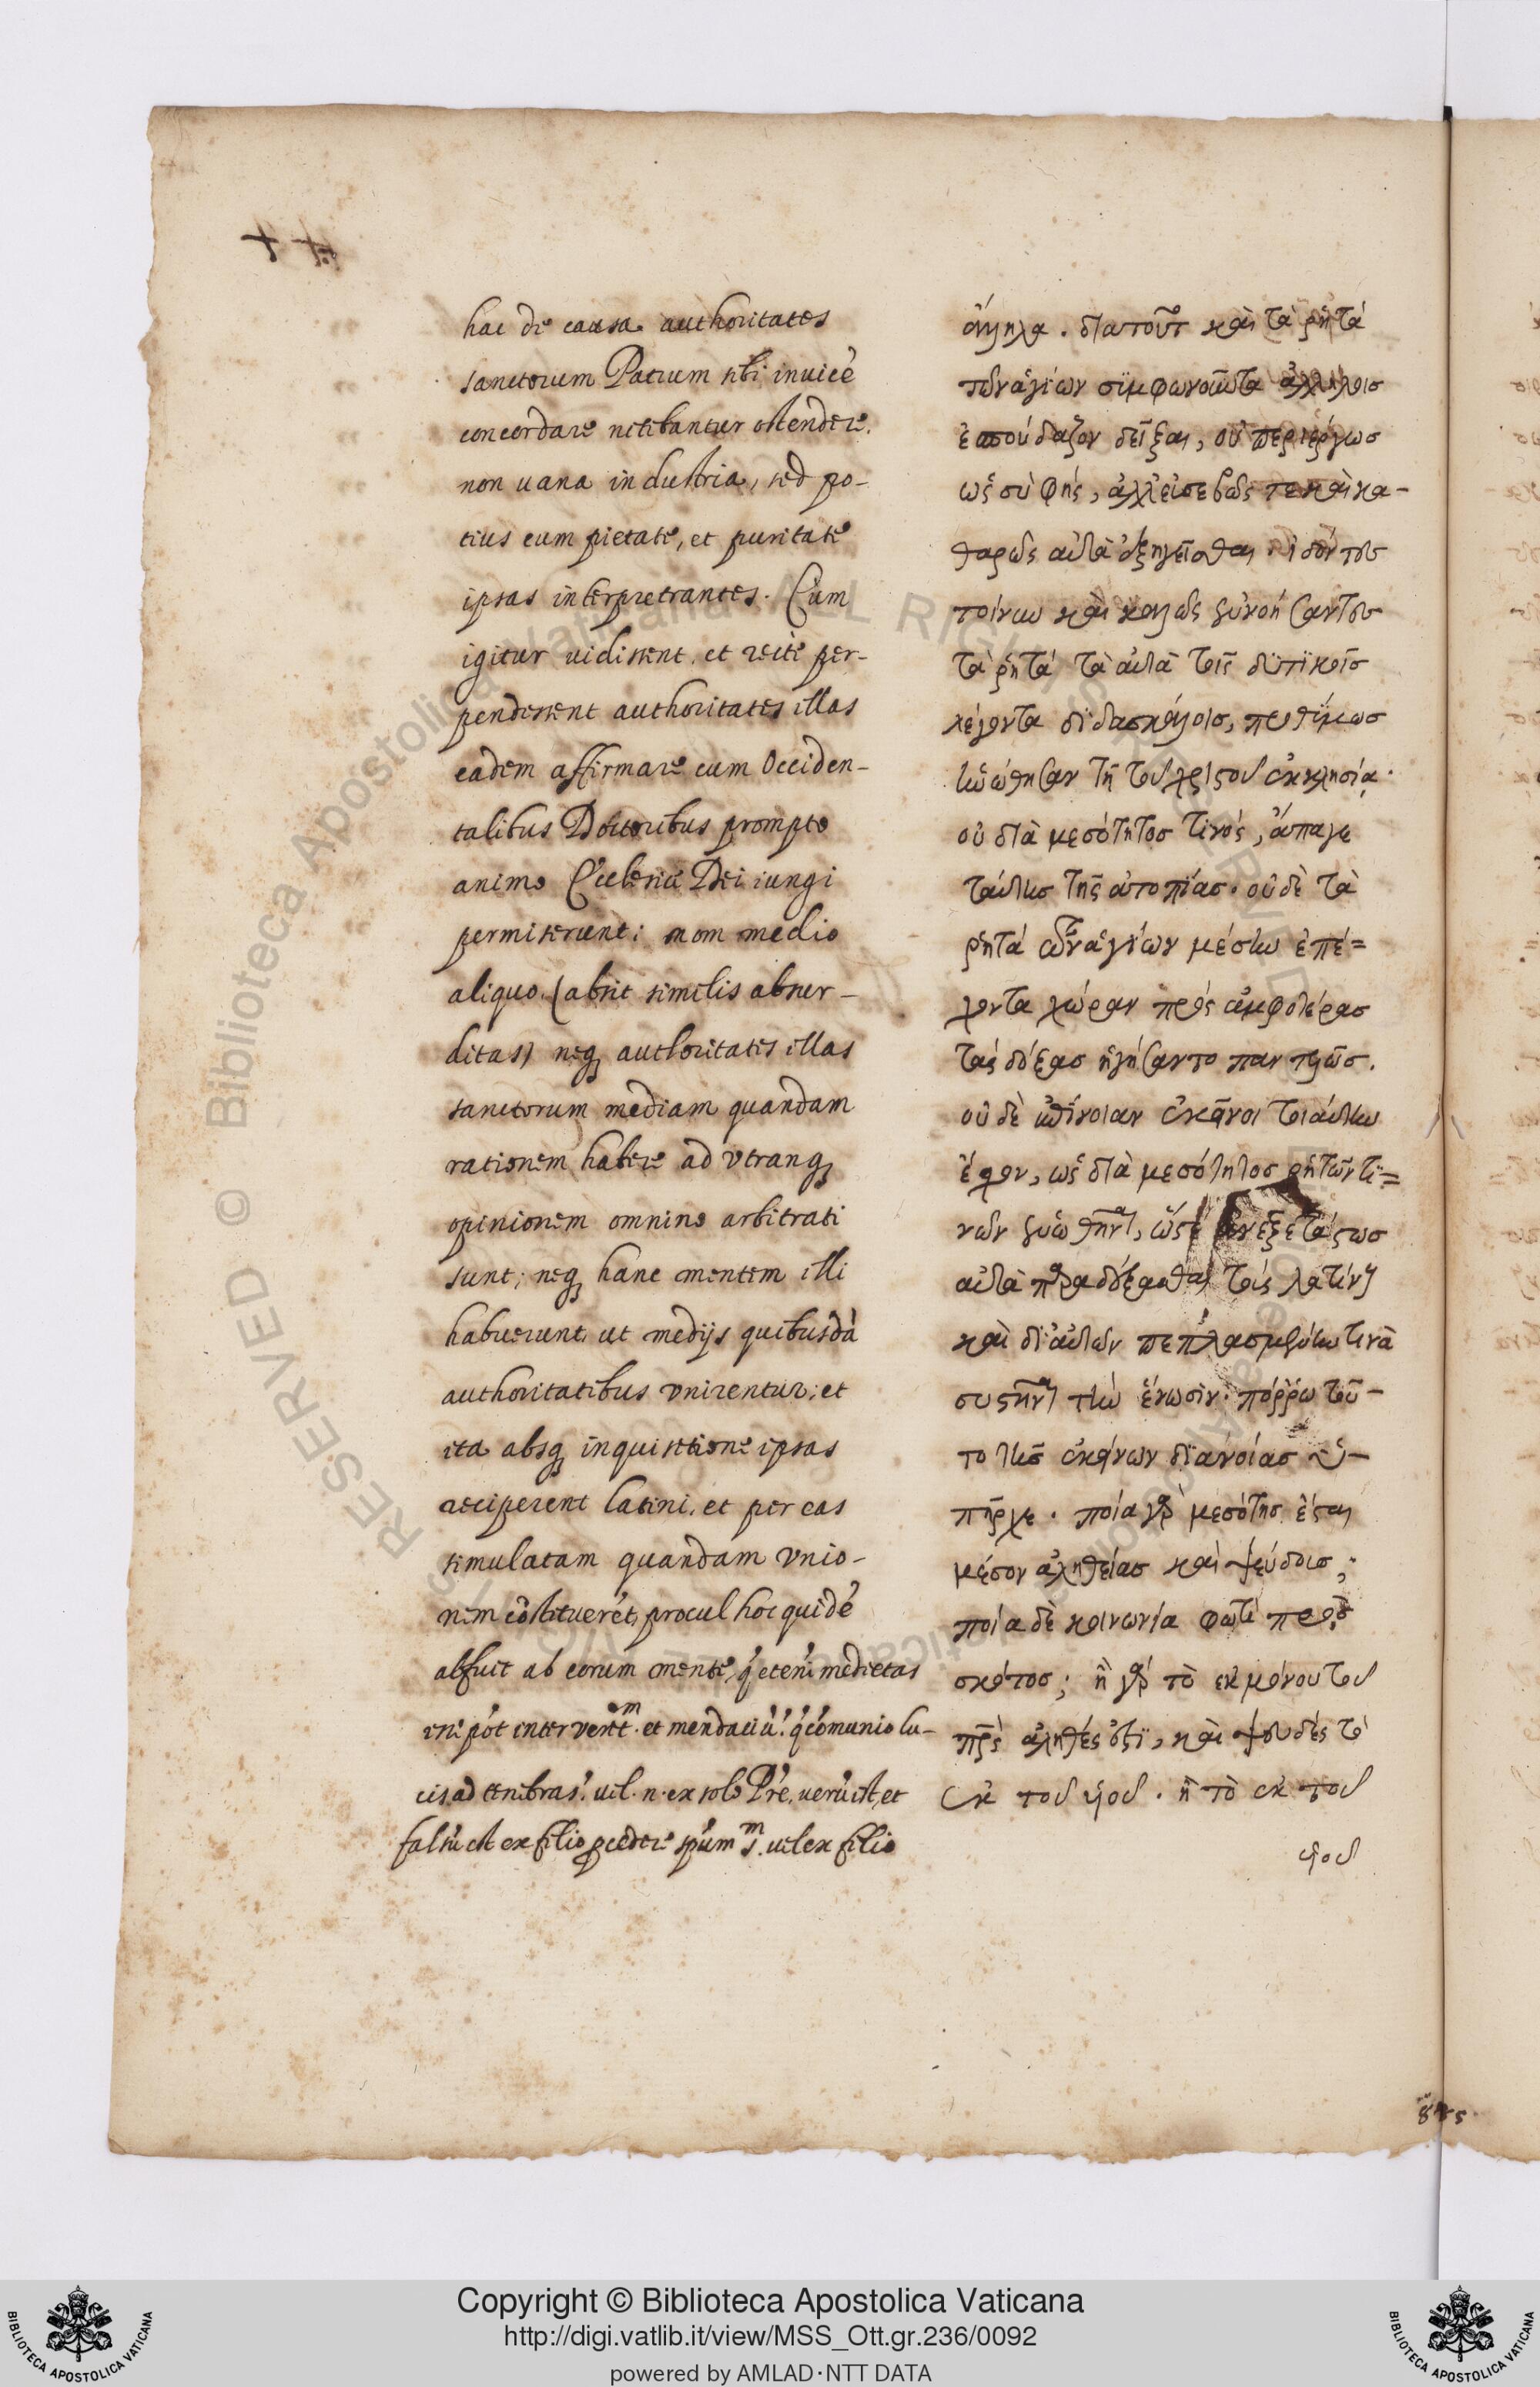 hac de causa authoritates
sanctorum Patrum sibi inuicẽ
concordare nitibantur ostendere.
non uana industria, sed po-
tius cum pietate, et puritate
ipsas interpretrantes. Cum
igitur uidissent, et recte per-
pendissent authoritates illas
eadem affirmare cum Occiden-
talibus Doctoribus prompto
animo Ecclesiæ Dei iungi
permiserunt; non medio
aliquo (absit similis absur-
ditas) neq; authoritates illas
sanctorum mediam quandam
rationem habere ad vtranq;
opinionem omnino arbitrati
sunt; neq; hanc mentem illi
habuerunt, ut medijs quibusdã
authoritatibus vnirentur; et
ita absq; inquisitione ipsas
reciperent latini, et per eas
simulatam quandam vnio-
nem cõstituerẽt, procul hoc quidẽ
abfuit ab eorum mente, medietas
et mendaciũ? cõmunio lu-
cis ad tenebras? uel. n. ex solo Pr̃e, uerũ est, et
falsũ est ex filio uel ex filio
ἄλληλα. διατοῦτο καὶ τὰ ῥητὰ
τῶν ἁγίων σϊμφωνοῦντα ἀλλήλοισ
ἐσπούδαζον δεῖξαι, οὐ περιέργωσ
ὡς σὺ φῆς, ἀλλ' εὐσεβῶς τε καὶ κα-
θαρῶς αὐτὰ ἐξηγεῖσθαι. ἰδόντεσ
τοίνυν καὶ καλῶς ξυνοήσαντεσ
τὰ ῥητὰ τὰ αὐτὰ τοῖς δϋτϊκοῖσ
λέγοντα δϊδασκάλοισ, προθύμωσ
ἡνώθησαν τῇ τοῦ χριστοῦ ἐκκλησίᾳ.
οὐ διὰ μεσότητοσ τϊνὸς, ἄπαγε
ταύτησ τῆς ἀτοπίασ. οὐδὲ τὰ
ῥητὰ τῶν ἁγίων μέσην ἐπέ=
χοντα χώραν πρὸς ἀμφοτέρασ
τὰς δόξασ ἡγήσαντο παντελῶσ.
οὐδὲ ἐπίνοιαν ἐκεῖνοι τοιαύτην
ἔσχον, ὡς διὰ μεσότητοσ ῥητῶν τϊ=
νῶν ἑνωθῆναι, ὥστε ἀνεξετάστωσ
αὐτὰ παραδέξασθαι τοὺς λατίνους
καὶ δϊ' αὐτῶν πεπλασμένην τινὰ
συστῆναι τὴν ἕνωσϊν. πόῤῥω τοῦ-
το τῆσ ἐκείνων διανοίασ ὑ-
πῆρχε. ποία γὰρ μεσότησ ἔσται
μέσον ἀληθείασ καὶ ψεύδουσ;
ποία δὲ κοινωνία φωτὶ πρὸσ
σκότοσ; ἢ γὰρ τὸ ἐκ μόνου τοῦ
πρ̃ς ἀληθές ἐστϊ, καὶ ψευδὲς τὸ
ἐκ τοῦ υἱοῦ. ἢ τὸ ἐκ τοῦ
υἱοῦ
Copyright © Biblioteca Apostolica Vaticana
http://digi.vatlib.it/view/MSS_Ott.gr.236/0092
powered by AMLAD·NTT DATA
BIBLIOTECA APOSTOLICA VATICANA
BIBLIOTECA APOSTOLICA VATICANA